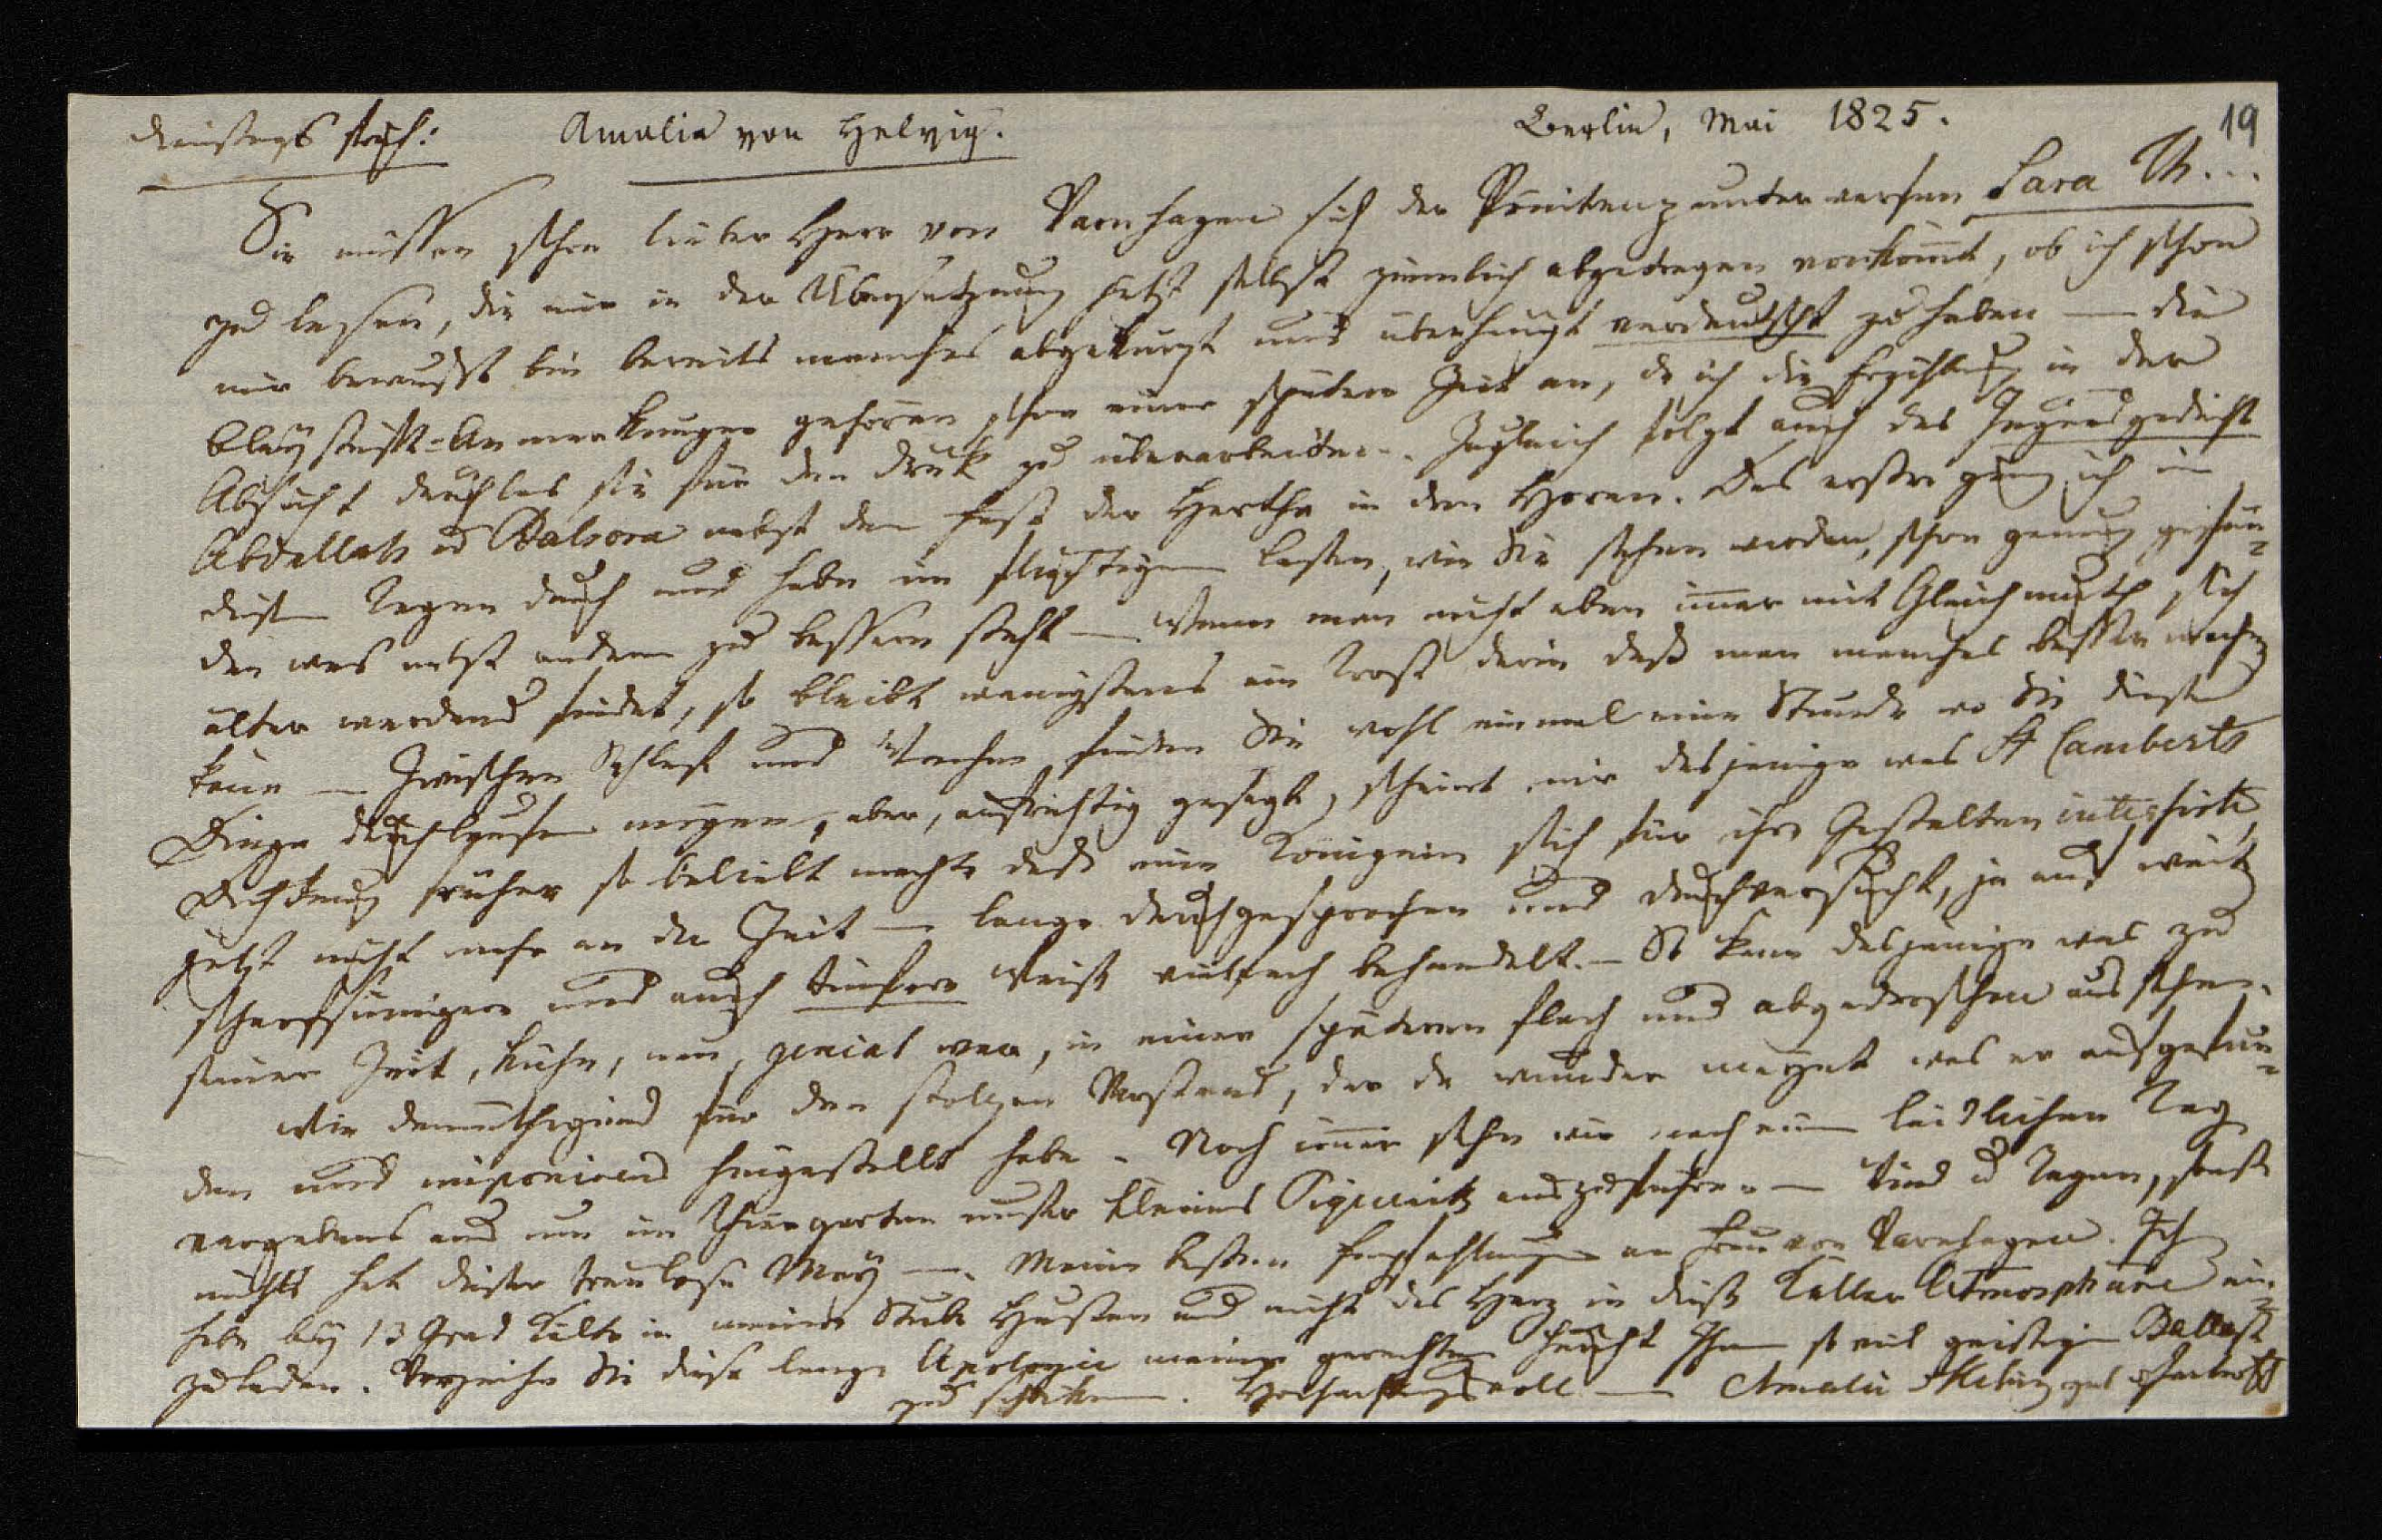 Dienstags früh: Amalia von Helvig. Berlin, Mai 1825. 19
Sie müssen schon lieber Herr von Varnhagen sich der Pönitenz unterwerfen Sara Th...
zu lesen, die mir in der Übersetzung jetzt selbst ziemlich abgetragen vorkom̅t, ob ich schon
mir bewußt bin bereits manches abgekürzt und überhaupt verdeutscht zu haben — die
Bleystift-Anmerkungen gehören schon einer spätern Zeit an, da ich die Erzählung in der
Absicht durchlas sie für den Druk zu überarbeiten. Zugleich folgt auch das Jugendgedicht
Abdallah u Balsora nebst dem Fest der Hertha in den Horen. Das erste ging ich in
diesen Tagen durch und habe im flüchtigen Lesen, wie Sie sehen werden, schon genug gefun-
den was nebst anderm zu bessern steht — Wenn man nicht eben im̅er mit Gleichmuth sich
älter werdend findet, so bleibt wenigstens ein Trost darin daß man manches besser machen
kann — Zwischen Schlaf und Wachen finden Sie wohl einmal eine Stunde wo Sie diese
Dinge durchlaufen mögen, aber, aufrichtig gesagt, scheint mir dasjenige was St Lamberts
Dichtung früher so beliebt machte daß eine Königin sich für ihre Gestalten
jetzt nicht mehr an der Zeit — lange durchgesprochen und durchversucht, ja auf weit
scharfsinniger und auch tiefere Weise vielfach behandelt. — So kann dasjenige was zu
seiner Zeit, kühn, neu, genial war, in einer spätern flach und abgedroschen aussehen.
Wie demüthigend für den stolzen Verstand, der da wunder meynt was er aufgefun-
den und imponirend hingestellt habe. Noch im̅er sehn wir nach einem leidlichen Tag
vergebens aus um im Thiergarten unser kleines Piquenik auszuführen — Wind u Regen, sonst
nichts hat dieser treulose May —. Meine besten Empfehlungen an Frau von Varnhagen. Ich
habe bey 13 Grad Kälte in meiner Stube Husten und nicht das Herz in diese Keller Atmosphäre ein
zuladen. Verzeihn Sie diese lange Apologie meiner gerechten Furcht Ihnen so viel geistigen Ballast
zu schiken. Hochachtungsvoll — Amalie Helvig geb